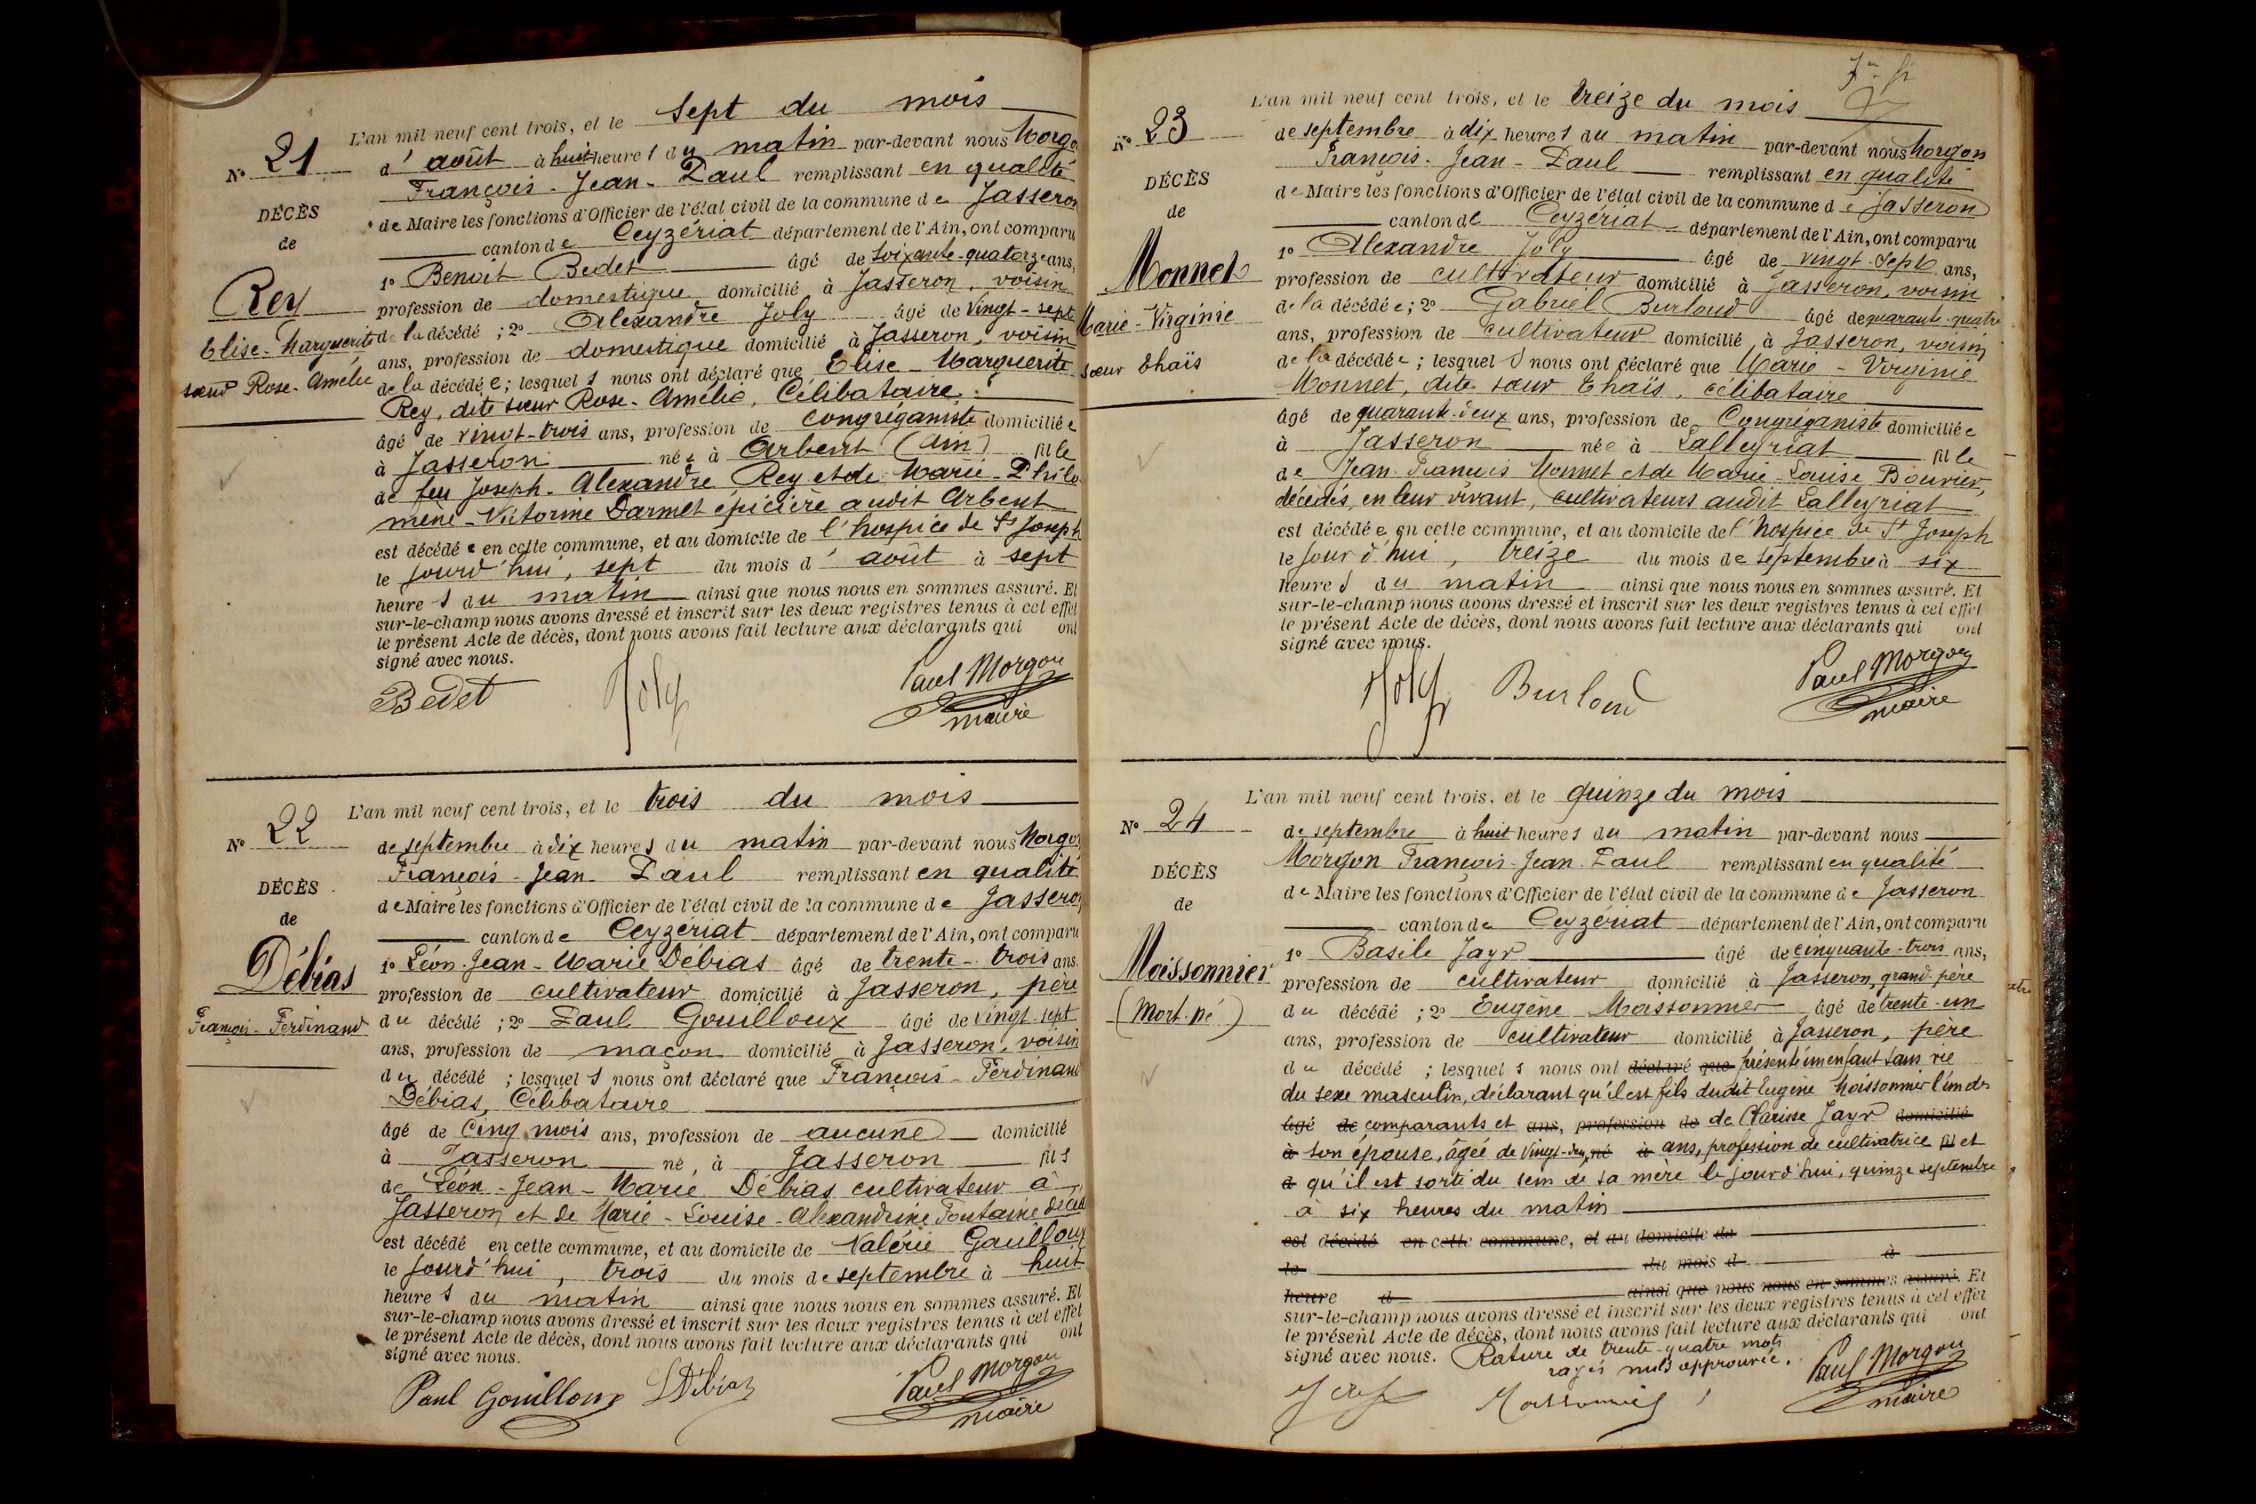 L'an mil neuf cent trois, et le sept du mois
N° 21
d'août à huit heures du matin par-devant nous Morgon
François-Jean-Paul remplissant en qualité
DÉCÈS
de
de Maire les fonctions d'Officier de l'état civil de la commune de Jasseron
canton de Ceyzériat département de l'Ain, ont comparu
1° Benoit Bedet âgé de soixante-quatorze ans,
Rey
profession de domestique domicilié à Jasseron, voisin
Elise-Marguerite
de la décédé ; 2° Alexandre Joly âgé de vingt-sept
sœur Rose-Amélie
ans, profession de domestique domicilié à Jasseron, voisin
de la décédée ; lesquels nous ont déclaré que Elise-Marguerite
Rey, dite sœur Rose-Amélie, Célibataire
âgé de vingt-trois ans, profession de congréganiste domiciliée
à Jasseron née à Arbent (Ain) fille
de feu Joseph-Alexandre Rey et de Marie-Philo-
mène-Victorine Darmet épicière audit Arbent
est décédée en cette commune, et au domicile de l'hospice de St Joseph
le jourd'hui, sept du mois d'août à sept
heures du matin ainsi que nous nous en sommes assuré. Et
sur-le-champ nous avons dressé et inscrit sur les deux registres tenus à cet effet
le présent Acte de décès, dont nous avons fait lecture aux déclarants qui ont
signé avec nous.
Bedet Joly Paul Morgon
maire
L'an mil neuf cent trois, et le trois du mois
N° 22
de septembre à dix heures du matin par-devant nous Morgon
François-Jean Paul remplissant en qualité
DÉCÈS
de
de Maire les fonctions d'Officier de l'état civil de la commune de Jasseron
canton de Ceyzériat département de l'Ain, ont comparu
Débias
1° Léon-Jean-Marie Débias âgé de trente-trois ans
profession de cultivateur domicilié à Jasseron, père
François-Ferdinand
du décédé ; 2° Paul Gouilloux âgé de vingt-sept
ans, profession de maçon domicilié à Jasseron, voisin
du décédé ; lesquels nous ont déclaré que François-Ferdinand
Débias, Célibataire
âgé de cinq mois ans, profession de aucune domicilié
à Jasseron né, à Jasseron fils
de Léon-Jean-Marie Débias cultivateur à
Jasseron et de Marie-Louise-Alexandrine Fontaine
est décédé en cette commune, et au domicile de Valérie Gouilloux
le jourd'hui, trois du mois de septembre à huit
heures du matin ainsi que nous nous en sommes assuré. Et
sur-le-champ nous avons dressé et inscrit sur les deux registres tenus à cet effet
le présent Acte de décès, dont nous avons fait lecture aux déclarants qui ont
signé avec nous.
Paul Gouilloux LDébias Paul Morgon
maire
L'an mil neuf cent trois, et le treize du mois
N° 23
de septembre à dix heures du matin par-devant nous Morgon
François-Jean-Paul remplissant en qualité
DÉCÈS
de
de Maire les fonctions d'Officier de l'état civil de la commune de Jasseron
canton de Ceyzériat département de l'Ain, ont comparu
Monnet
1° Alexandre Joly âgé de vingt-sept ans,
profession de cultivateur domicilié à Jasseron, voisin
Marie-Virginie
de la décédée ; 2° Gabriel Burloud âgé de quarante-quatre
ans, profession de cultivateur domicilié à Jasseron, voisin
sœur Thaïs
de la décédée ; lesquels nous ont déclaré que Marie-Virginie
Monnet, dite sœur Thaïs, célibataire
âgé de quarante-deux ans, profession de Congréganiste domiciliée
à Jasseron née à Lalleyriat fille
de Jean-François Monnet et de Marie-Louise Bouvier,
décédés, en leur vivant, cultivateurs audit Lalleyriat
est décédée en cette commune, et au domicile de l'hospice de St Joseph
le jourd'hui, treize du mois de septembre à six
heures du matin ainsi que nous nous en sommes assuré. Et
sur-le-champ nous avons dressé et inscrit sur les deux registres tenus à cet effet
le présent Acte de décès, dont nous avons fait lecture aux déclarants qui ont
signé avec nous.
Joly Burloud Paul Morgon
maire
L'an mil neuf cent trois, et le quinze du mois
N° 24
de septembre à huit heures du matin par-devant nous
Morgon François-Jean-Paul remplissant en qualité
DÉCÈS
de
de Maire les fonctions d'Officier de l'état civil de la commune de Jasseron
canton de Ceyzériat département de l'Ain, ont comparu
Moissonnier
1° Basile Jayr âgé de cinquante-trois ans,
profession de cultivateur domicilié à Jasseron, grand-père
(Mort-né)
du décédé ; 2° Eugène Moissonnier âgé de trente-un
ans, profession de cultivateur domicilié à Jasseron, père
du décédé ; lesquels nous ont déclaré que présenté un enfant sans vie
du sexe masculin, déclarant qu'il est fils dudit Eugène Moissonnier l'un des
âgé de comparants et ans, profession de de Clarisse Jayr domicilié
à son épouse, âgée de vingt-deux né à ans, profession de cultivatrice fil et
d qu'il est sorti du sein de sa mère le jourd'hui, quinze septembre
à six heures du matin
est décédé en cette commune, et au domicile de
le du mois d à
heure d ainsi que nous nous en sommes assuré. Et
sur-le-champ nous avons dressé et inscrit sur les deux registres tenus à cet effet
le présent Acte de décès, dont nous avons fait lecture aux déclarants qui ont
signé avec nous. Rature de trente-quatre mots
rayés nuls approuvée.
Jayr Moissonnier Paul Morgon
maire